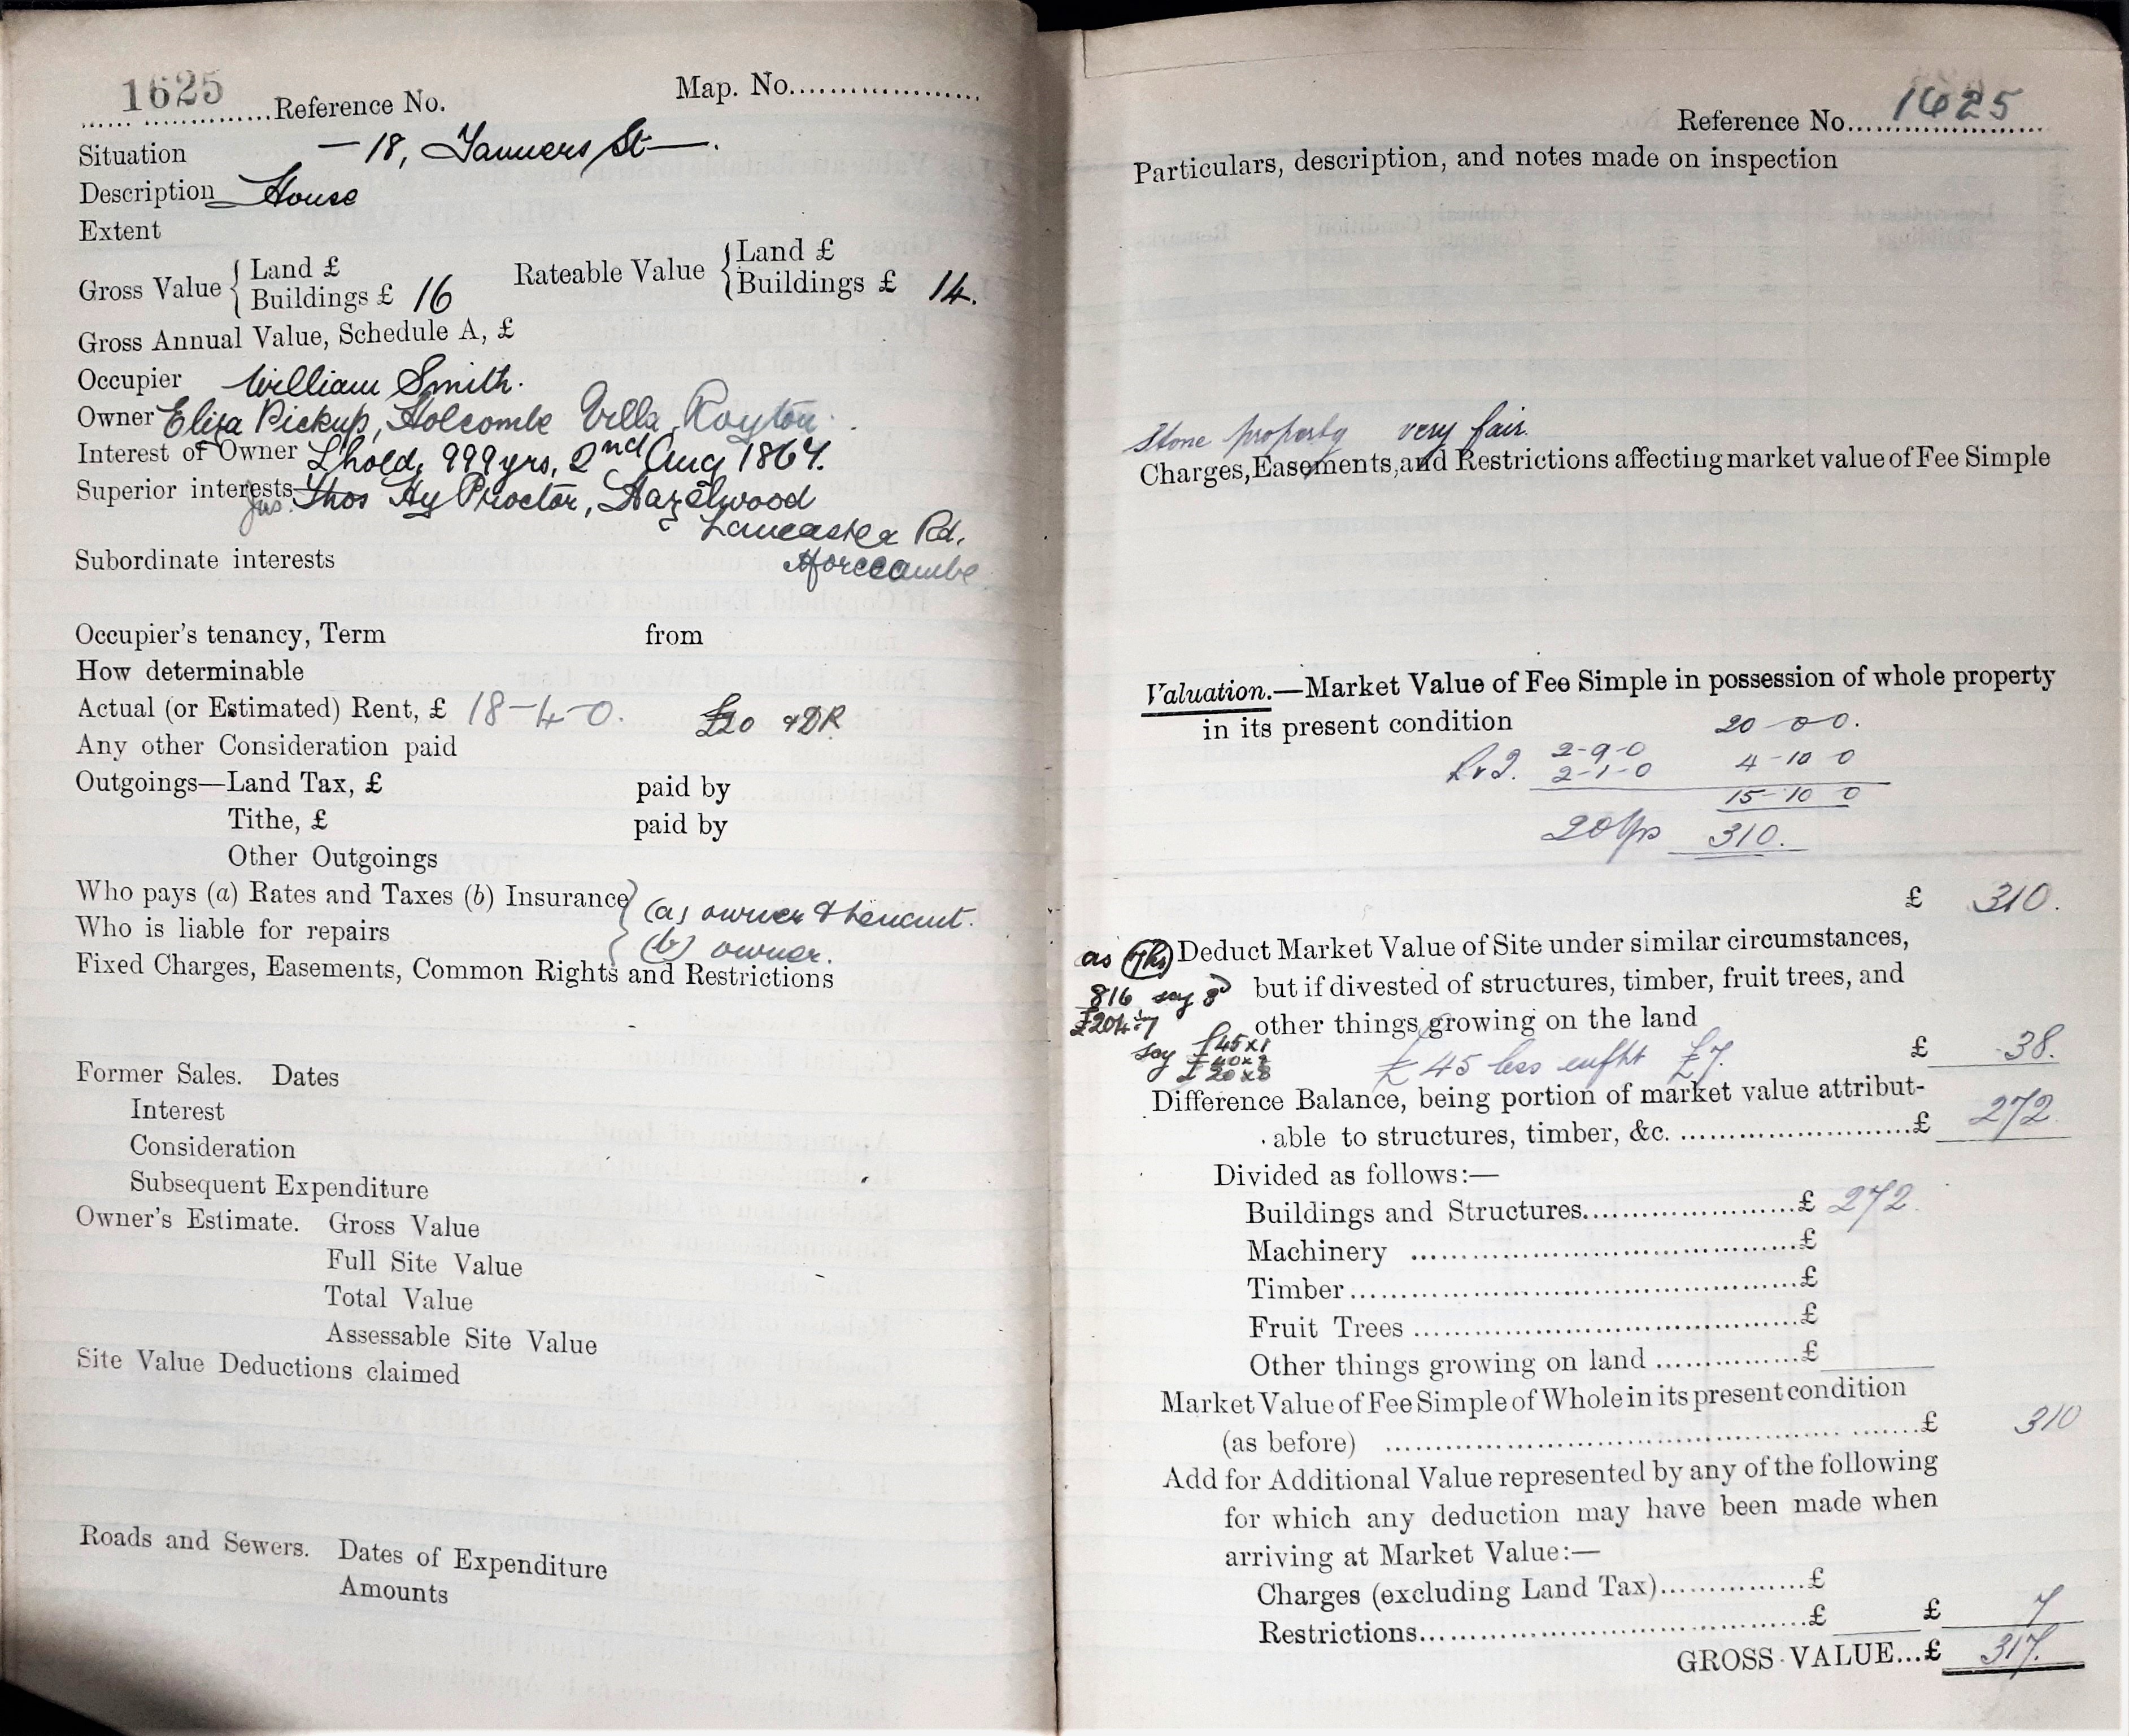 1625 Reference No. Map. No.
Situation — 18, Tanners St —.
Description House
Extent
Gross Value { Land £ Rateable Value { Land £
Buildings £ 16 Buildings £ 14.
Gross Annual Value, Schedule A, £
Occupier William Smith.
Owner Eliza Pickup, Holcombe Villa, Royton.
Interest of Owner L'hold, 999 yrs, 2nd Aug 1864.
Superior interests Jas. Thos Hy Proctor, Hazelwood
Lancaster Rd,
Subordinate interests Morecambe
Occupier's tenancy, Term from
How determinable
Actual (or Estimated) Rent, £ 18-4-0. £20 & DR
Any other Consideration paid
Outgoings—Land Tax, £ paid by
Tithe, £ paid by
Other Outgoings
Who pays (a) Rates and Taxes (b) Insurance } (a) owner & tenant.
Who is liable for repairs { (b) owner.
Fixed Charges, Easements, Common Rights and Restrictions
Former Sales. Dates
Interest
Consideration
Subsequent Expenditure
Owner's Estimate. Gross Value
Full Site Value
Total Value
Assessable Site Value
Site Value Deductions claimed
Roads and Sewers. Dates of Expenditure
Amounts
Reference No. 1625
Particulars, description, and notes made on inspection
Stone property very fair.
Charges, Easements, and Restrictions affecting market value of Fee Simple
Valuation.—Market Value of Fee Simple in possession of whole property
in its present condition 20-0-0.
2-9-0
2-1-0 4-10 0
15-10 0
20 Yp 310.
£ 310.
as Deduct Market Value of Site under similar circumstances,
816 say 8 but if divested of structures, timber, fruit trees, and
£204 other things growing on the land
say £45x1
£40x2
£20x8
£45 less £7. £ 38.
Difference Balance, being portion of market value attribut-
able to structures, timber, &c. £ 272
Divided as follows:—
Buildings and Structures £ 272.
Machinery £
Timber £
Fruit Trees £
Other things growing on land £
Market Value of Fee Simple of Whole in its present condition
(as before) £ 310
Add for Additional Value represented by any of the following
for which any deduction may have been made when
arriving at Market Value:—
Charges (excluding Land Tax) £
Restrictions £ £ 7
GROSS VALUE...£ 317.